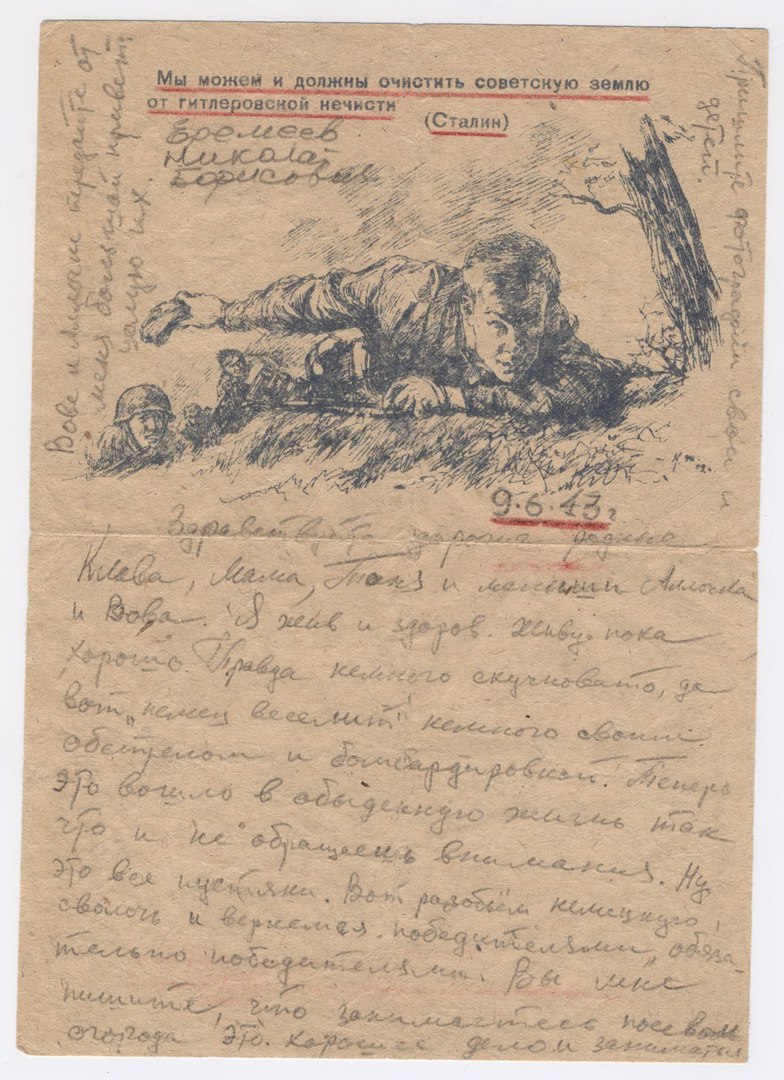 Мы можем и должны очистить советскую землю
от гитлеровской нечисти
(Сталин)
Еремеев
Николай
Борисович
Вове и Аллочке передайте от
меня большой привет
целую их.
Пришлите фотографии свои и
детей.
9.6.43г
Здравствуйте дорогие родные
Клава, Мама, Таня и малыши Аллочка
и Вова. Я жив и здоров. Живу пока
хорошо. Правда немного скучновато, да
вот „немец веселит" немного своим
обстрелом и бомбардировкой. Теперь
это вошло в обыденную жизнь так
что и не обращаешь внимания. Ну
это все пустяки. Вот разобьём немецкую
сволочь и вернемся победителями, обяза-
тельно победителями. Вы мне
пишите, что занимаетесь посевом
огорода это хорошее дело и заниматься